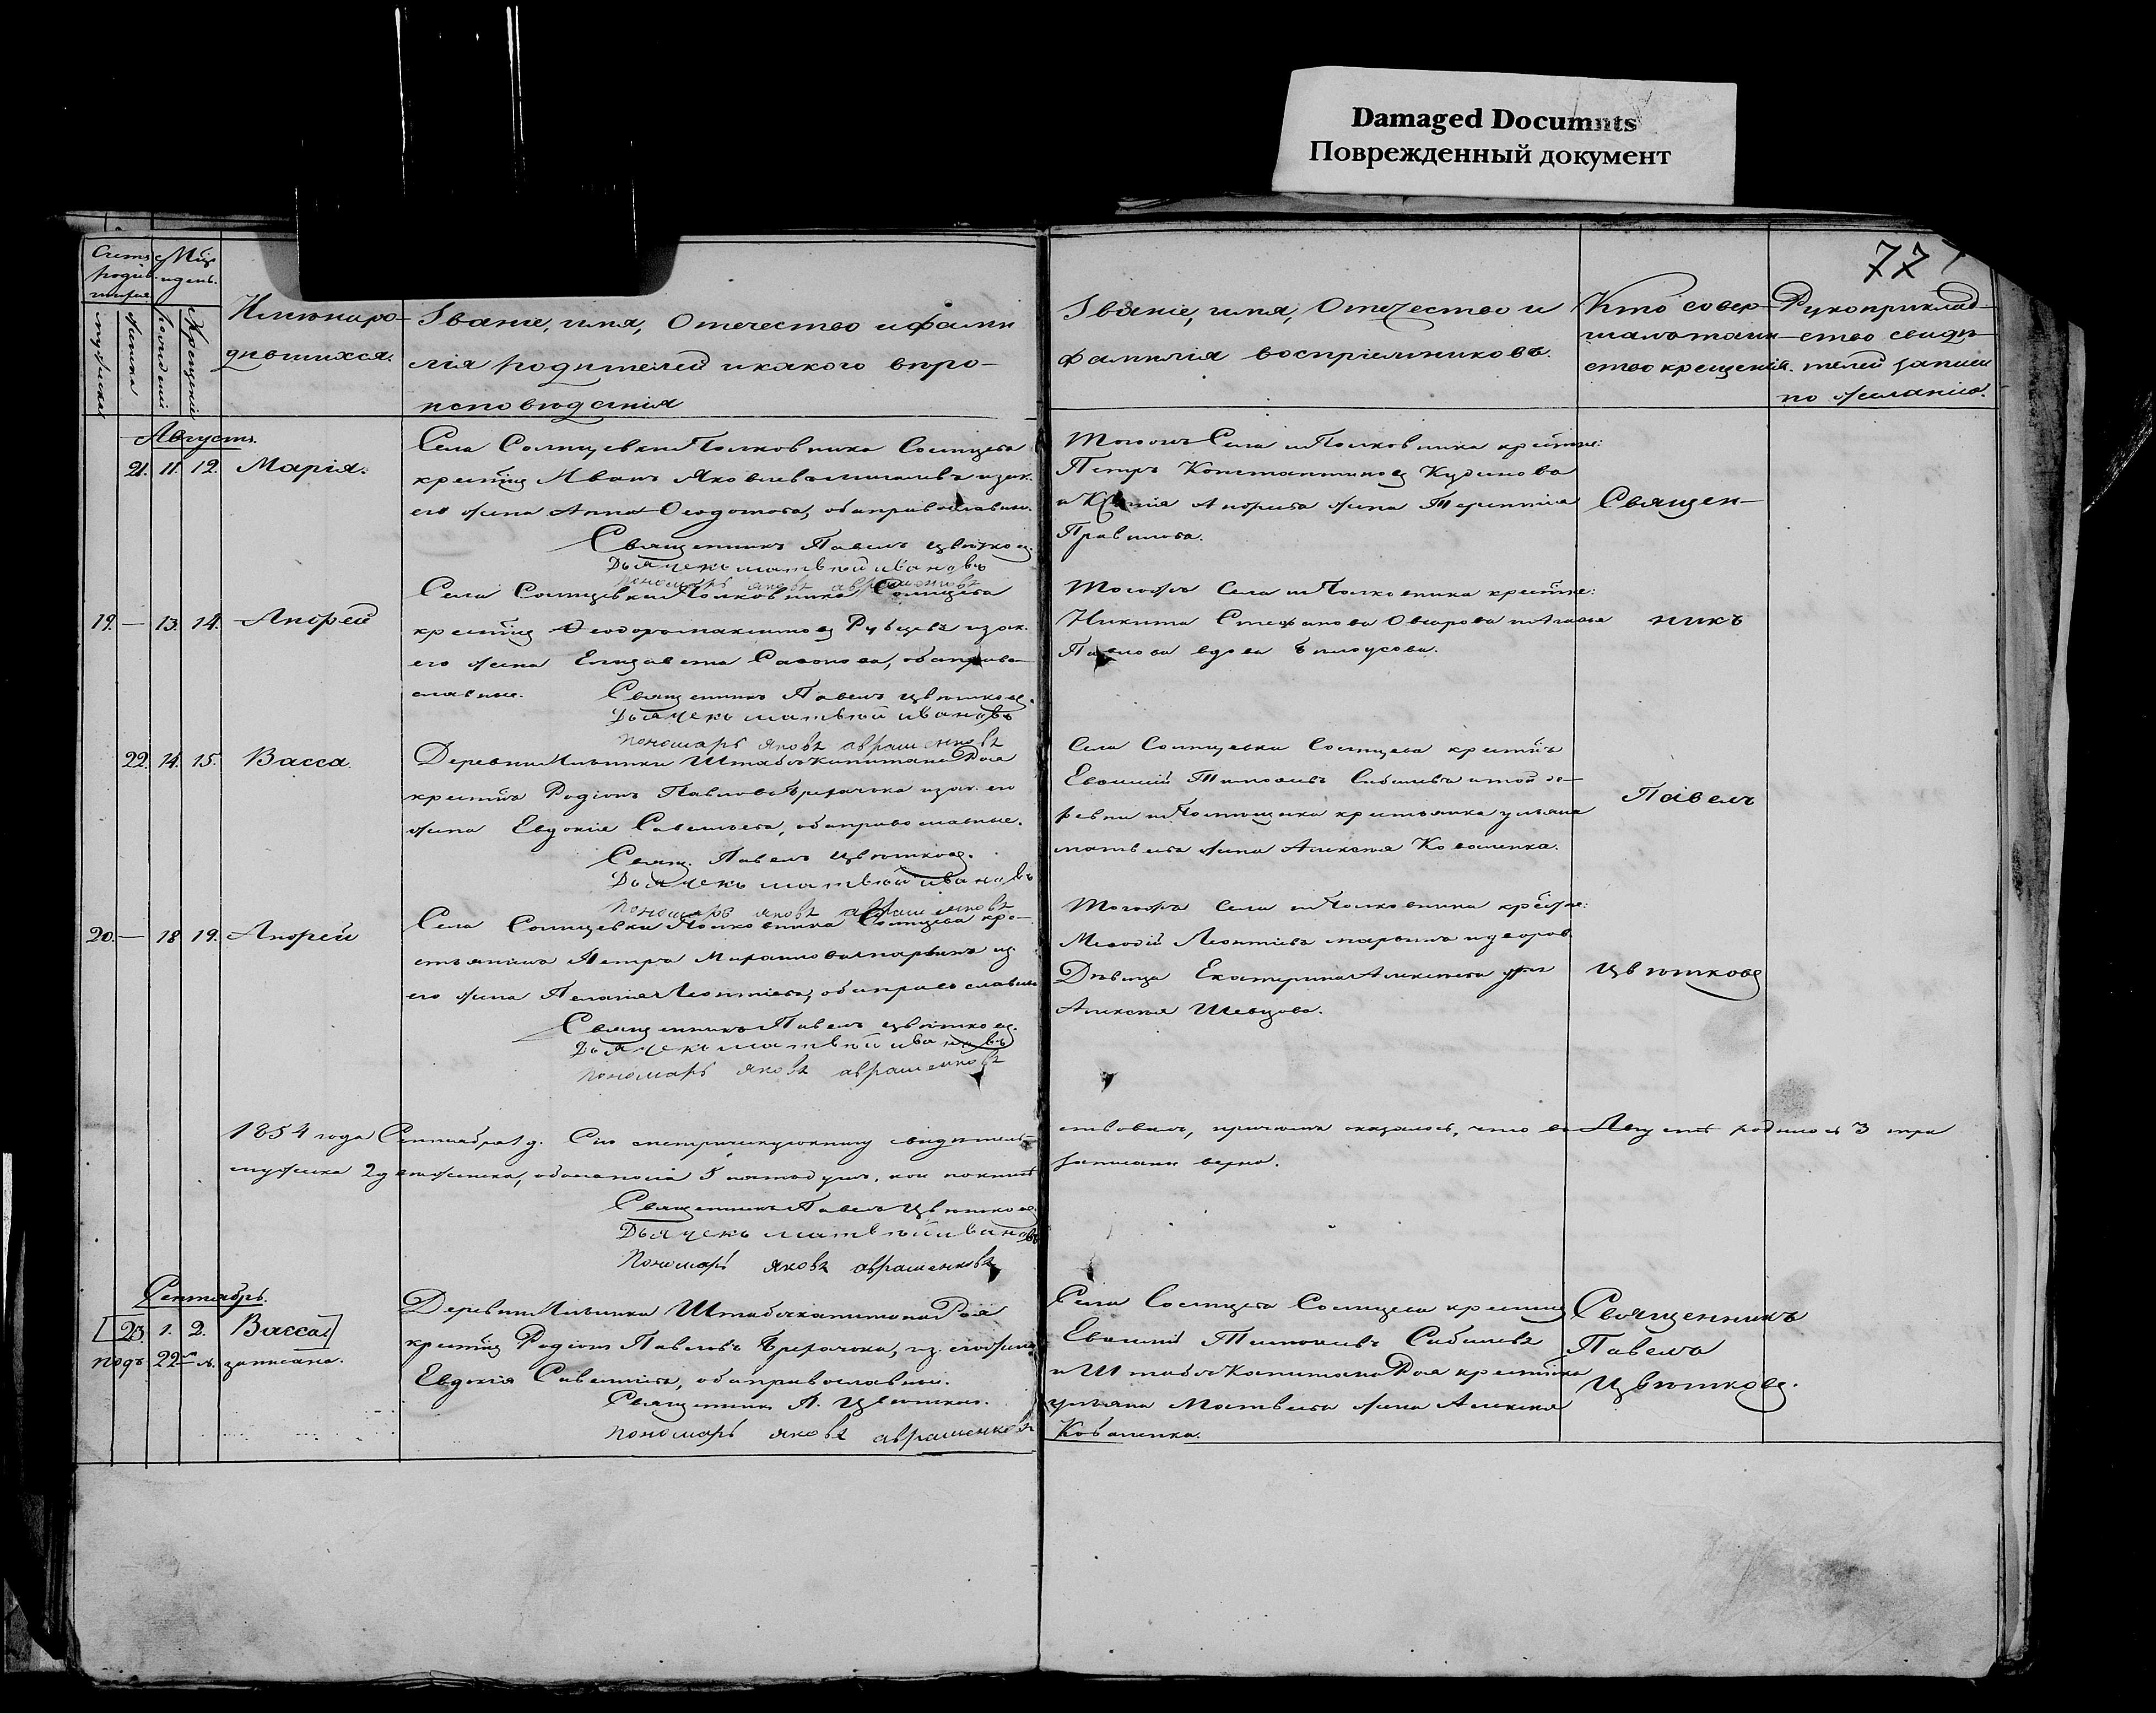 Damaged Documnts
Поврежденный документ
77
Счетъ родив-
Мѣц. и день.
мужеска
женска
рожденія
крещенія
Имена ро-
дившихся.
Званіе, имя, Отечество и фами
лія родителей и какого вѣро-
исповѣданія
Званіе, имя, Отечество и
фамилія воспріемниковъ.
Кто совер-
шалъ таин-
ство крещенія.
Рукоприклад-
ство свидѣ-
телей записи
по желанію.
Августъ.
21. 11. 12. Марія.
Села Солнцевки Полковника Солнцева
крестян Иванъ Яковлевъ зак.
его жена Анна Ѳедотова, оба православн.
Священникъ Павелъ Цвѣтковъ.
Дьячекъ Матвѣй Ивановъ
Пономарь Яковъ Авраменковъ
Тогожъ Села и Полковника крестяне:
Петръ Константиновъ Кудинова
и Андреева жена Терентія
Священ-
19. — 13. 14. Андрей
Села Солнцевки Полковника Солнцева
крестян Ѳеодоръ Максимовъ зак.
его жена Елизавета Сазонова, оба право-
славные. Священникъ Павелъ Цвѣтковъ.
Дьячекъ Матвѣй Ивановъ
Пономарь Яковъ Авраменковъ
Тогожъ Села и Полковника крестяне:
Никита Стефановъ
Павлова вдова Бѣлоусова.
никъ
22. 14. 15. Васса.
Деревни Ильинки Штабсъ Капитана Роя
крестян Родіонъ Павловъ зак. его
жена Евдокія Савельева, оба православные.
Свящ. Павелъ Цвѣтковъ.
Дьячекъ Матвѣй Ивановъ
Пономарь Яковъ Авраменковъ
Села Солнцевки Солнцева крестян
Евѳимій Тимоѳеевъ и той де-
ревни и Помѣщика крестьянка Ульяна
Матвеева жена Алексея Коваленка.
Павелъ
20. — 18 19. Андрей
Села Солнцевки Полковника Солнцева кре-
стьянинъ Петръ Михаиловъ
его жена Пелагія Леонтіева, оба православные
Священникъ Павелъ Цвѣтковъ.
Дьячекъ Матвѣй Ивановъ
Пономарь Яковъ Авраменковъ
Тогожъ Села и Полковника крестяне:
Меѳодій Леонтіевъ и дворов.
Дѣвица Екатерина Алексѣева
Алексѣя Шевцова.
Цвѣтковъ
1854 года Сентября 1 д. Сію метрическую книгу свидѣтель-
ствовали, причемъ оказалось, что въ Августѣ родилось 3 три
мужеска 2 два женска, обоего пола 5 пять душъ, кои
записаны верно.
Священникъ Павелъ Цвѣтковъ.
Дьячекъ Матвѣй Ивановъ
Пономарь Яковъ Авраменковъ
Сентябрь.
[23. 1. 2. Васса]
подъ 22 №. записана.
Деревни Ильинка Штабсъ капитана Роя
крестян Родіонъ Павловъ , из. его жена
Евдокія Савельева, оба православные.
Священникъ П. Цвѣтковъ.
Пономарь Яковъ Авраменковъ
Села Солнцева крестян
Евѳимій Тимоѳеевъ
и Штабсъ Капитана Роя крестянка
Ульяна Матвеева жена Алексея
Коваленка.
Священникъ
Павелъ
Цвѣтковъ.